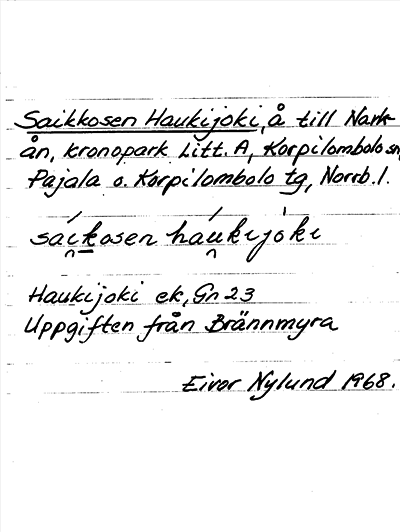 Saikkosen Haukijoki, å till Nark-
ån, kronopark Litt. A, Korpilombolo sn,
Pajala o. Korpilombolo tg, Norrb. l.
saikosen haukijoki
Haukijoki ek, Gn 23
Uppgiften från Brännmyra
Eivor Nylund 1968.